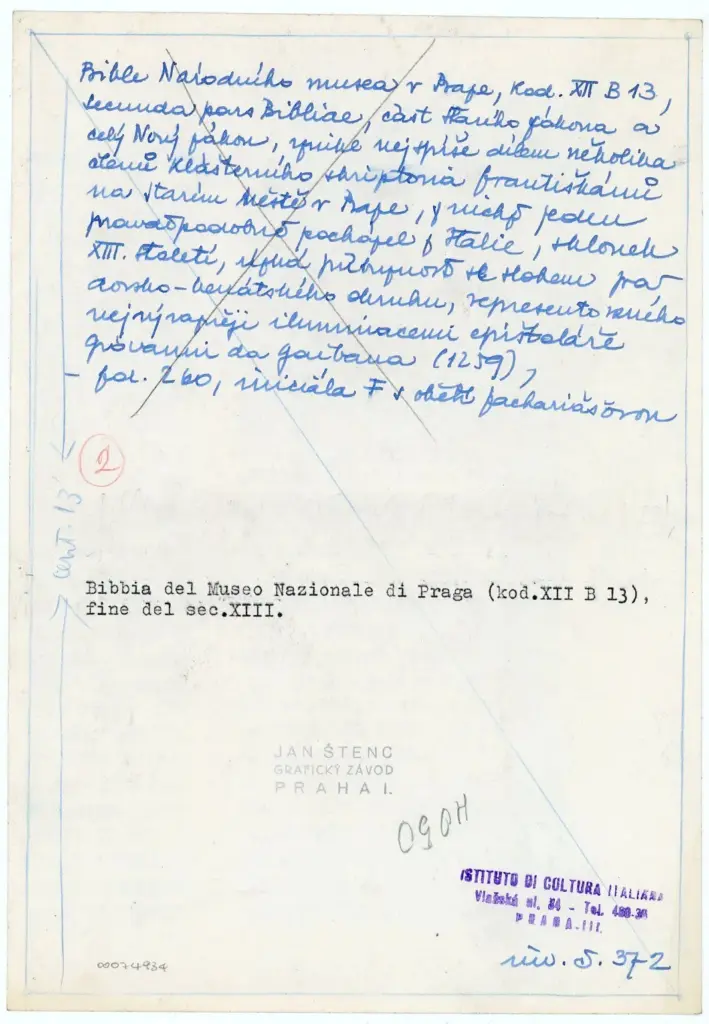 Bible Národního musea v Praze, kod. XII B 13,
secunda pars Bibliae, část Starého zákona a
celý Nový zákon, vznikl nejspíše dílem několika
členů klášterního skriptoria františkánů
na Starém Městě v Praze, z nichž jeden
pravděpodobně pocházel z Italie, sklonek
XIII. století, úzká příbuznost se slohem pa-
dovsko-benátského okruhu, representovaného
nejvýrazněji iluminacemi epištoláře
Giovanni da Gaibana (1259),
– fol. 260, iniciála F s obětí Zachariášovou
2
cent. 13
Bibbia del Museo Nazionale di Praga (kod.XII B 13),
fine del sec.XIII.
JAN ŠTENC
GRAFICKÝ ZÁVOD
PRAHA I.
ISTITUTO DI CULTURA ITALIANA
Vlašská ul. 34 – Tel.
PRAGA-III.
inv. S. 372
00074934